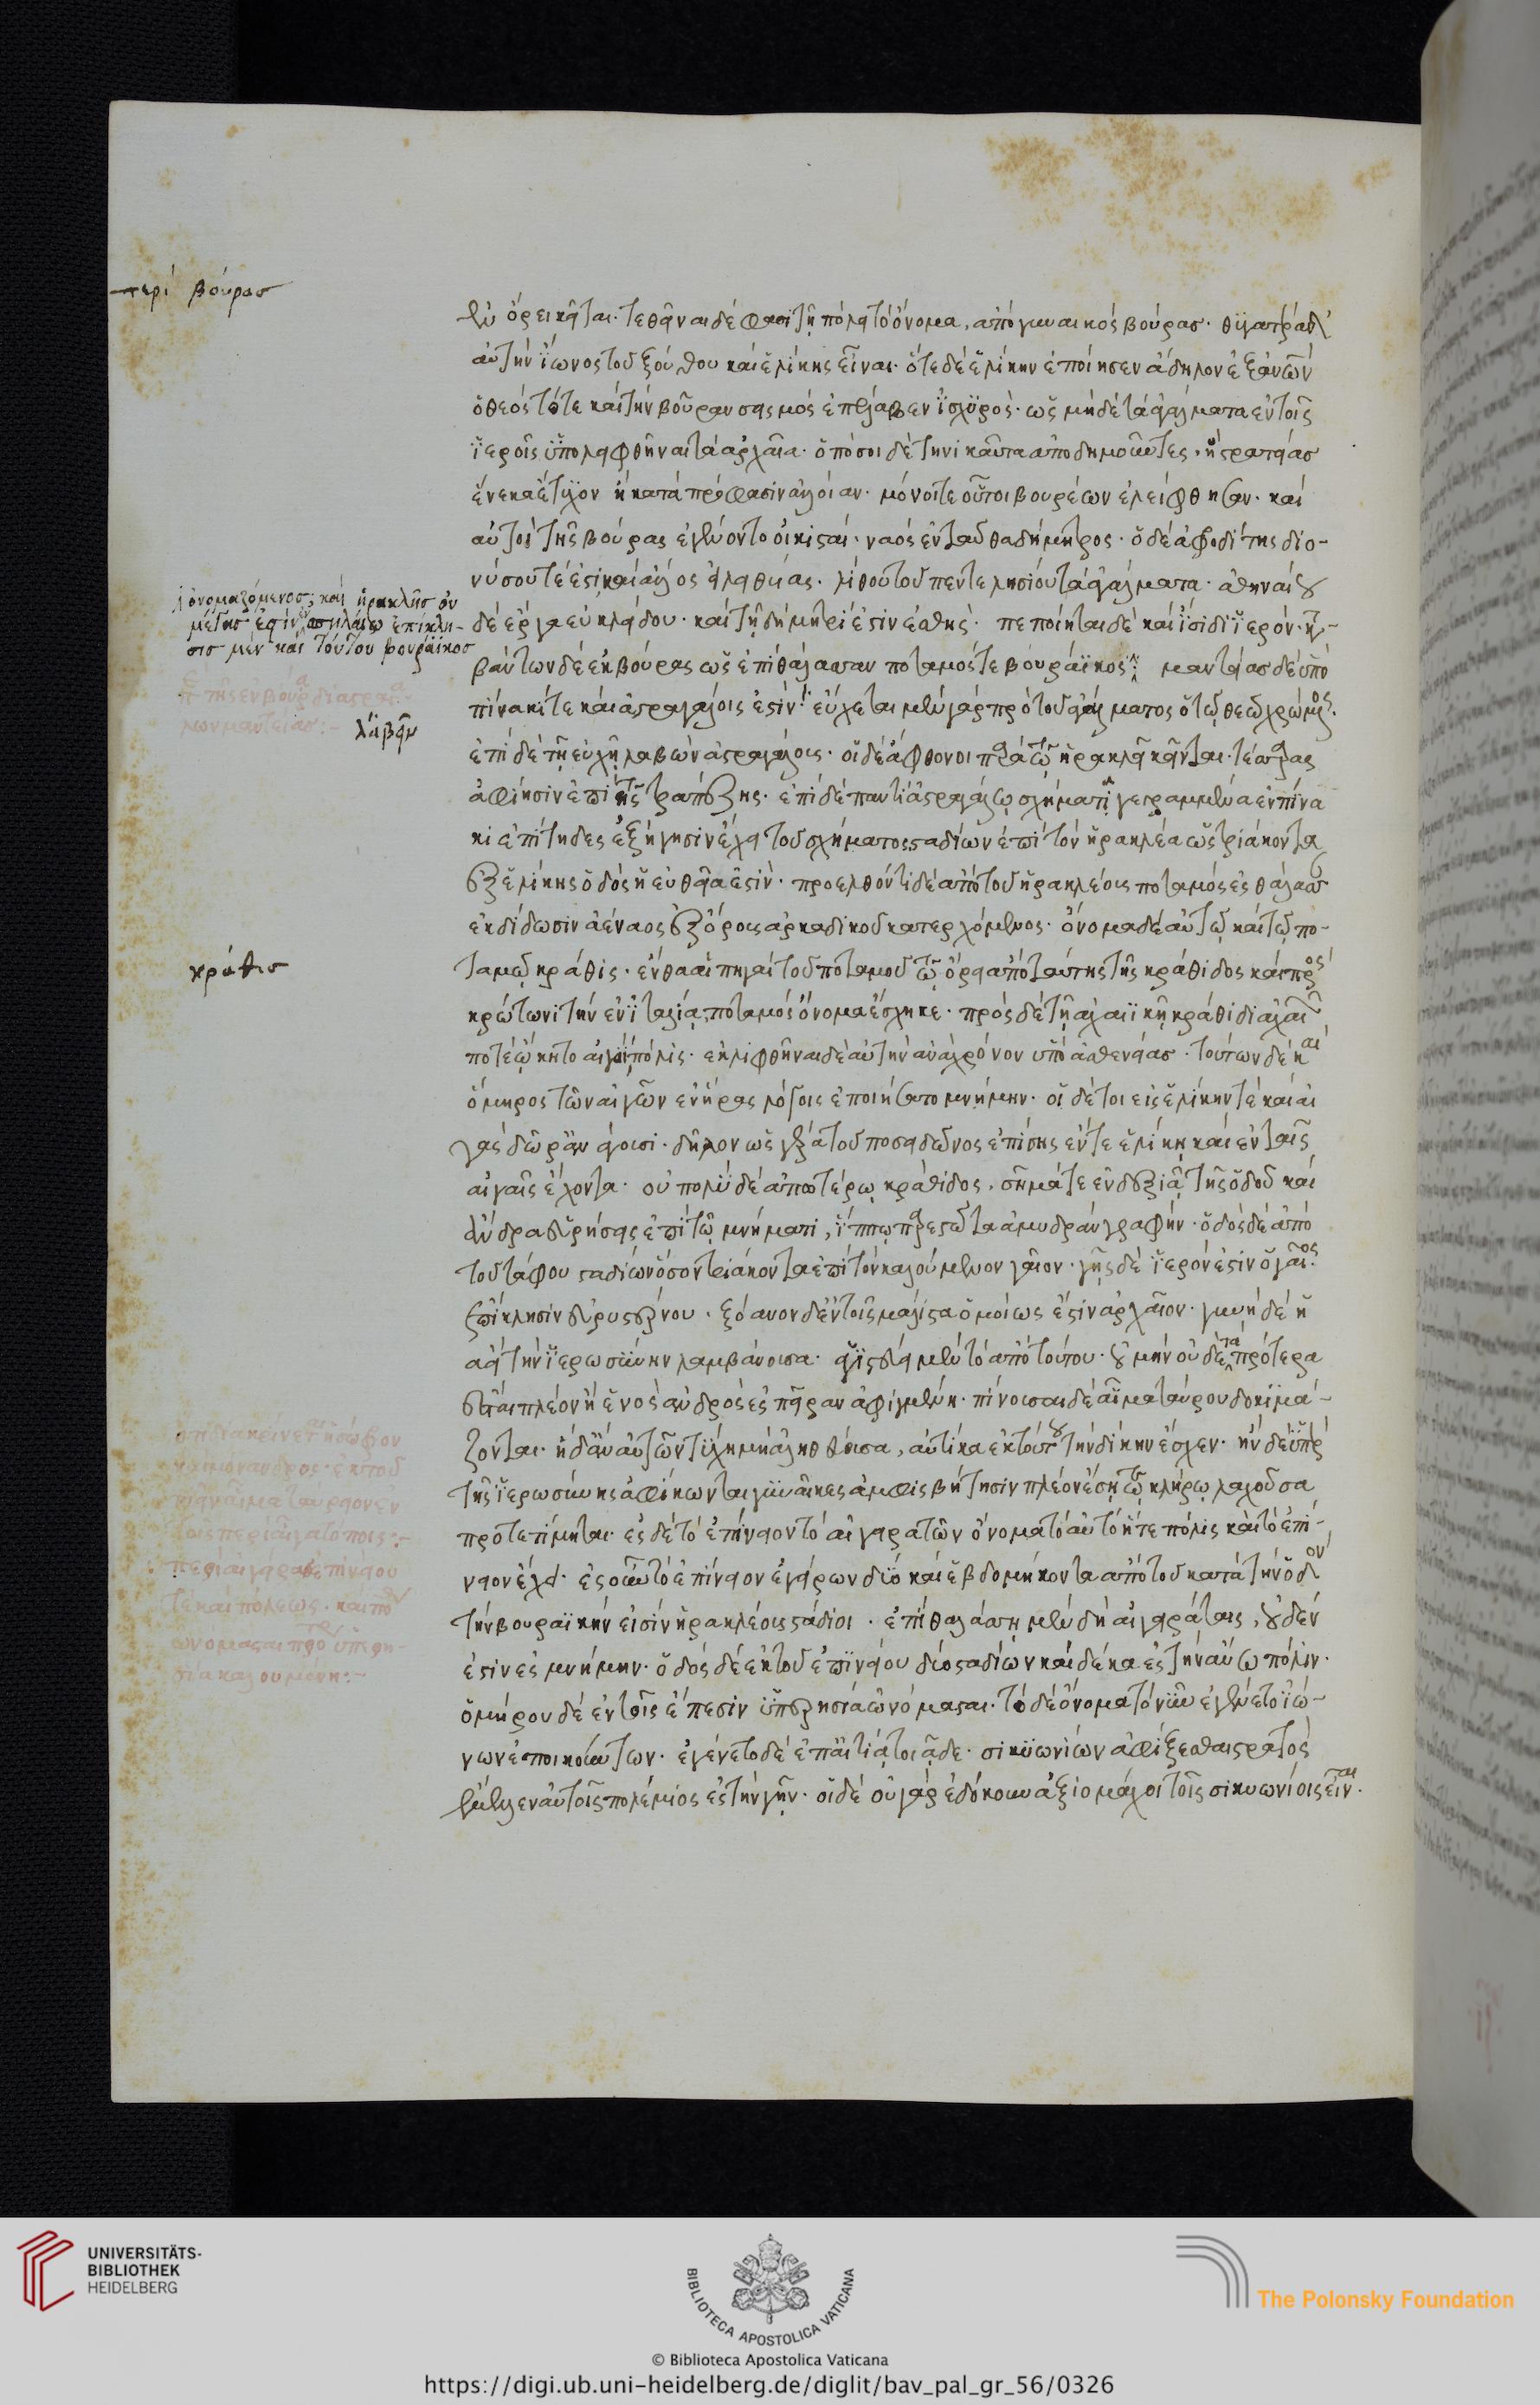 περί βούρασ
ἐν ὄρει κεῖται. τεθεῖναι δέ φασι τῇ πόλει τὸ ὄνομα, ἀπὸ γυναικός βούρασ. θυγατέρα δ'
αὐτήν ἴωνος τοῦ ξούθου καὶ ἑλίκης εἶναι. ὅτε δέ ἑλίκην ἐποίησεν ἄδηλον ἐξ ἀνῶν
ὁ θεός τότε καὶ τήν βοῦραν σεισμός ἐπέλαβεν ἰσχυρός. ὡς μηδέ τὰ ἀγάλματα ἐν τοῖς
ἱεροῖς ὑπολειφθῆναι τὰ ἀρχαῖα. ὁπόσοι δέ τηνικαῦτα ἀποδημοῦντες. ἢ στρατείασ
ἕνεκα ἔτυχον ἢ κατά πρόφασιν ἀλλοίαν. μόνοί τε οὗτοι βουρέων ἐλείφθησαν. καί
αὐτοί τῆς βούρας ἐγένοντο οἰκισταί. ναός ἐνταῦθα δήμητρος. ὁ δέ ἀφροδίτης διο-
νύσου τέ ἐστι καὶ ἄλλος εἰλειθυίας. λίθου τοῦ πεντελησίου τὰ ἀγάλματα. ἀθηναίου
δέ ἔργα εὐκλείδου. καὶ τῇ δήμητρί ἐστιν ἐσθής. πεποίηται δέ καὶ ἴσιδι ἱερόν. κα-
βάντων δέ ἐκ βούρας ὡς ἐπί θάλασσαν ποταμός τε βουραϊκός: μαντείας δέ ὑπό
ὀνομαζόμενος; καὶ ἡρακλῆσ οὐ
μέγασ ἐστίν ἐν σπηλαίῳ ἐπίκλη-
σισ μὲν καὶ τούτου βουραϊκοσ
πίνακί τε καὶ ἀστραγάλοις ἐστίν: εὔχεται μέν γάρ πρό τοῦ ἀγάλματος ὁ τῷ θεῷ χρώμενος.
τῆς ἐν βούρα δι' ἀστραγά
λων μαντείασ:-
λαβεῖν
ἐπί δέ τῇ εὐχῇ λαβών ἀστραγάλους. οἱ δέ ἄφθονοι παρά τῷ ἡρακλεῖ κεῖνται. τέσσαρας
ἀφίησιν ἐπί τῆς τραπέζης. ἐπί δέ παντί ἀστραγάλῳ σχήματί γεγραμμένα ἐν πίνα
κι ἐπίτηδες ἐξήγησιν ἔχει τοῦ σχήματος σταδίων ἐπί τόν ἡρακλέα ὡς τριάκοντα
ἐξ ἑλίκης ὁδός ἡ εὐθεῖα ἐστίν. προελθόντι δέ ἀπό τοῦ ἡρακλέους ποταμός ἐς θάλασσαν
ἐκδίδωσιν ἀέναος ἐξ ὄρους ἀρκαδικοῦ κατερχόμενος. ὄνομα δέ αὐτῷ καὶ τῷ πο-
κράθισ
ταμῷ κράθις. ἔνθα αἱ πηγαί τοῦ ποταμοῦ τῷ ὄρει ἀπό ταύτης τῆς κράθιδος καὶ πρός
κρώτωνι τήν ἐν ἰταλίᾳ, ποταμός ὄνομα ἔσχηκε. πρός δέ τῇ ἀχαιϊκῇ κράθιδι ἀχαιῶν
ποτέ ᾠκεῖτο αἰγαί πόλις. ἐκλειφθῆναι δέ αὐτήν ἀνά χρόνον ὑπό ἀσθενείας. τούτων δέ καί
ὅμηρος τῶν αἰγῶν ἐν ἥρας λόγοις ἐποιήσατο μνήμην. οἱ δέ τοι εἰς ἑλίκην τέ καὶ αἰ
γάς δῶρ' ἀνάγουσι. δῆλον ὡς γέρα τοῦ ποσειδῶνος ἐπίσης ἔν τε ἑλίκῃ καί ἐν ταῖς
αἰγαῖς ἔχοντα. οὐ πολύ δέ ἀπωτέρω κράθιδος. σῆμά τε ἐν δεξιᾷ τῆς ὁδοῦ καί
ἄνδρα εὑρήσεις ἐπί τῷ μνήματι, ἵππῳ παρεστῶτα ἀμυδράν γραφήν. ὁδός δέ ἀπό
τοῦ τάφου σταδίων ὅσον τριάκοντα ἐπί τόν καλούμενον γαῖον. γῆς δέ ἱερόν ἐστιν ὁ γαῖος.
ἐπίκλησιν εὐρυστέρνου. ξόανον δέ τοῖς μάλιστα ὁμοίως ἐστίν ἀρχαῖον. γυνή δέ ἡ
ἀεί τήν ἱερωσύνην λαμβάνουσα. ἁγιστεύει μέν τό ἀπό τούτου. οὐ μήν οὐδέ τα πρότερα
ἔσται πλέον ἢ ἑνός ἀνδρός ἐς πεῖραν ἀφιγμένη. πίνουσαι δέ αἷμα ταύρου δοκιμά-
ζονται. ἡ δ' ἄν αὐτῶν τύχῃ μή ἀληθεύουσα, αὐτίκα ἐκ τούτου τήν δίκην ἔσχεν. ἢν δέ ὑπέρ
τῆς ἱερωσύνης ἀφίκωνται γυναῖκες ἀμφισβήτησιν πλέον ἔσῃ τῷ κλήρῳ λαχοῦσα
προτετίμηται. ἐς δέ τό ἐπίνειον τό αἰγειρατῶν ὄνομα τό αὐτό ἥ τε πόλις καὶ τό ἐπί-
νειον ἔχει. ἐς οὖν τό ἐπίνειον ἐγείρων δύο καὶ ἑβδομήκοντα ἀπό τοῦ κατά τήν ὁδόν
τήν βουραϊκήν εἰσίν ἡρακλέους στάδιοι. ἐπί θαλάσσῃ μέν δή αἰγειράταις, οὐδέν
ἐστιν ἐς μνήμην. ὁδός δέ ἐκ τοῦ ἐπινείου δύο σταδίων καὶ δέκα ἐς τήν ἄνω πόλιν.
ὁμήρου δέ ἐν τοῖς ἔπεσιν ὑπερησία ὠνόμασται. τό δέ ὄνομα τό νῦν ἐγένετο ἰώ-
νων ἐποικούντων. ἐγένετο δέ ἐπ' αἰτίᾳ τοιᾷδε. σικυωνίων ἀφίξεσθαι στρατός
ἔμελλεν αὐτοῖς πολέμιος ἐς τήν γῆν. οἱ δέ οὐ γάρ ἐδόκουν ἀξιόμαχοι τοῖς σικυωνίοις εἶναι.
UNIVERSITÄTS-
BIBLIOTHEK
HEIDELBERG
BIBLIOTECA APOSTOLICA VATICANA
The Polonsky Foundation
© Biblioteca Apostolica Vaticana
https://digi.ub.uni-heidelberg.de/diglit/bav_pal_gr_56/0326